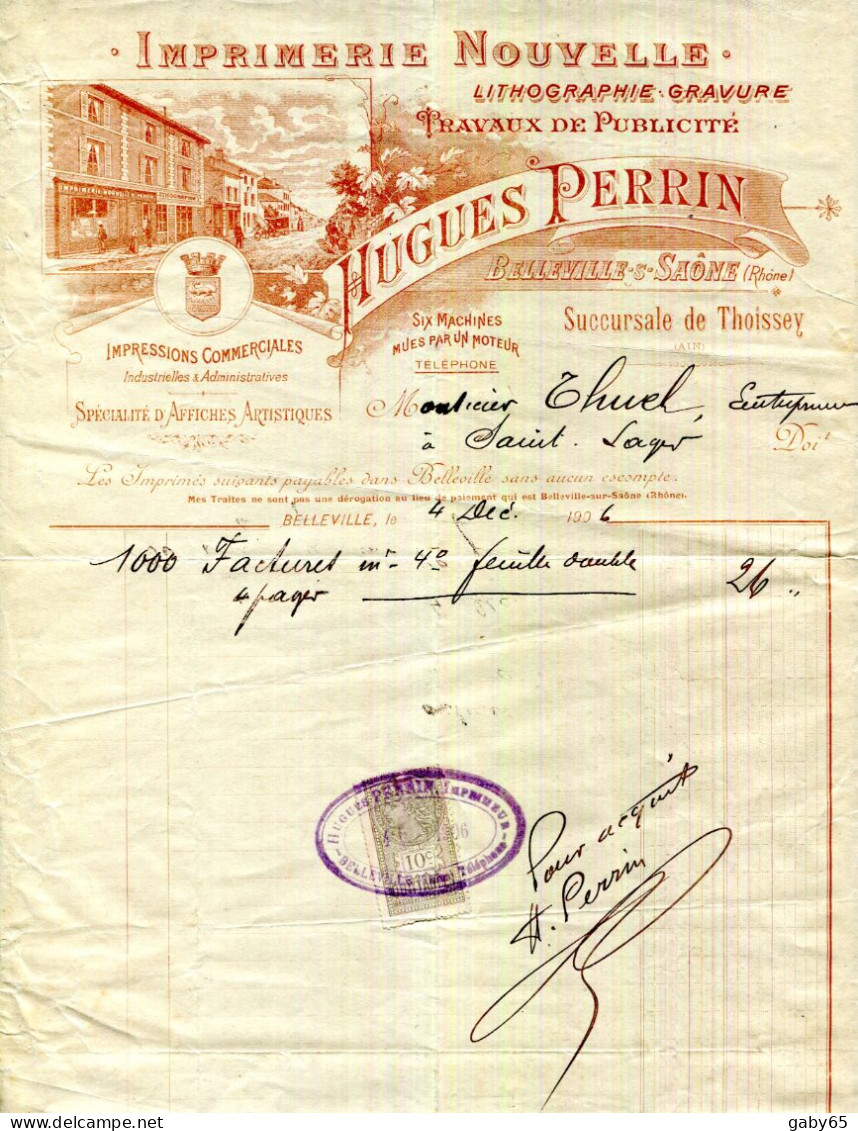 · IMPRIMERIE NOUVELLE ·
LITHOGRAPHIE · GRAVURE
TRAVAUX DE PUBLICITÉ
HUGUES PERRIN
BELLEVILLE-S-SAÔNE (Rhône)
IMPRIMERIE NOUVELLE
LITHOGRAPHIE
SIX MACHINES
MUES PAR UN MOTEUR
TÉLÉPHONE
Succursale de Thoissey
(AIN)
IMPRESSIONS COMMERCIALES
Industrielles & Administratives
SPÉCIALITÉ D'AFFICHES ARTISTIQUES
Monsieur Thuel, Entrepreneur
à Saint-Lager Doit
Les Imprimés suivants payables dans Belleville sans aucun escompte.
Mes Traites ne sont pas une dérogation au lieu de paiement qui est Belleville-sur-Saône (Rhône).
BELLEVILLE, le 4 Déc. 1906
1000 Factures in-4º feuille double 26 "
4 pages
HUGUES PERRIN, IMPRIMEUR
10c
BELLEVILLE Téléphone
Pour acquit
H. Perrin
gaby65